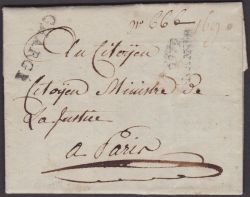 CHARGÉ
nº 666
Au Citoyen
Citoyen Ministre de
La Justice
a Paris